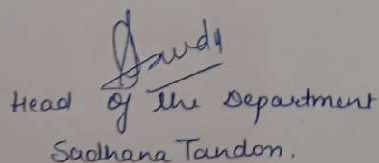 Head of the Department
Sadhana Tandon.